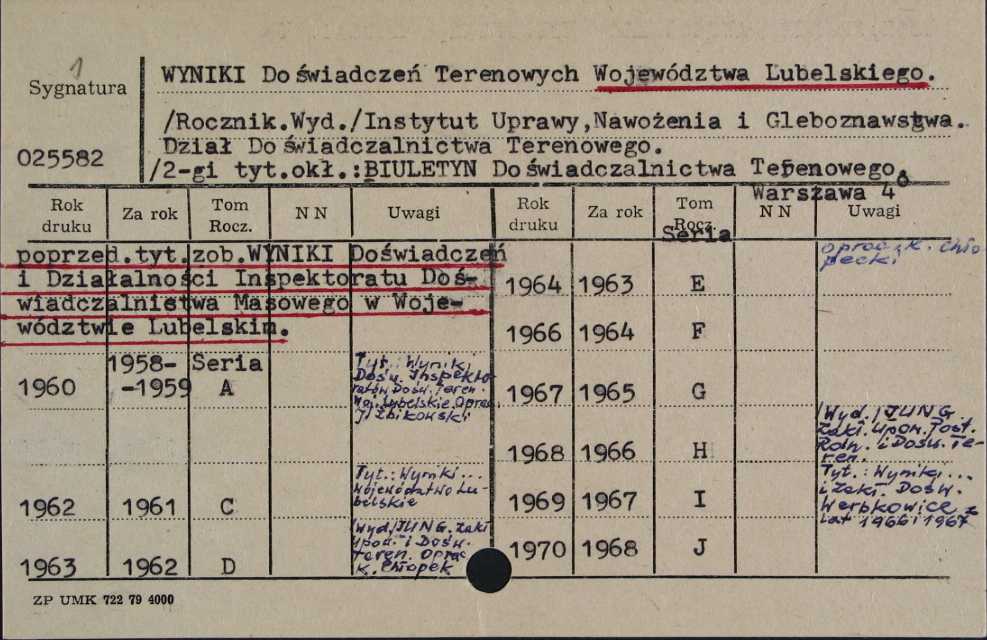 1
Sygnatura
025582
WYNIKI Doświadczeń Terenowych Województwa Lubelskiego.
/Rocznik.Wyd./Instytut Uprawy,Nawożenia i Gleboznawstwa.
Dział Doświadczalnictwa Terenowego.
/2-gi tyt.okł.:BIULETYN Doświadczalnictwa Terenowego.
Warszawa 4
Rok druku Za rok Tom Rocz. NN Uwagi
Rok druku Za rok Tom Rocz. NN Uwagi
Seria
poprzed.tyt.zob.WYNIKI Doświadczeń
i Działalności Inspektoratu Doś-
wiadczalnistwa Masowego w Woje-
wództwie Lubelskim.
1960 1958-
-1959 Seria
A Tyt.: Wyniki
Dośw. Inspekto-
ratów Dośw. Teren.
Woj. Lubelskie. Oprac.
J. Żbikowski
1962 1961 C Tyt.: Wyniki...
Województwo Lu-
belskie
1963 1962 D /Wyd./JUNG. Zakł.
upow. i Dośw.
teren. Oprac.
K. Chłopek
1964 1963 E oprac. K. Chło-
pecki
1966 1964 F
1967 1965 G
1968 1966 H /Wyd./JUNG
Zakł. Upow. Post.
Roln. i Dośw. Te-
ren.
1969 1967 I Tyt.: Wyniki...
i Zakł. Dośw.
Werbkowice z
lat 1966 i 1967
1970 1968 J
ZP UMK 722 79 4000